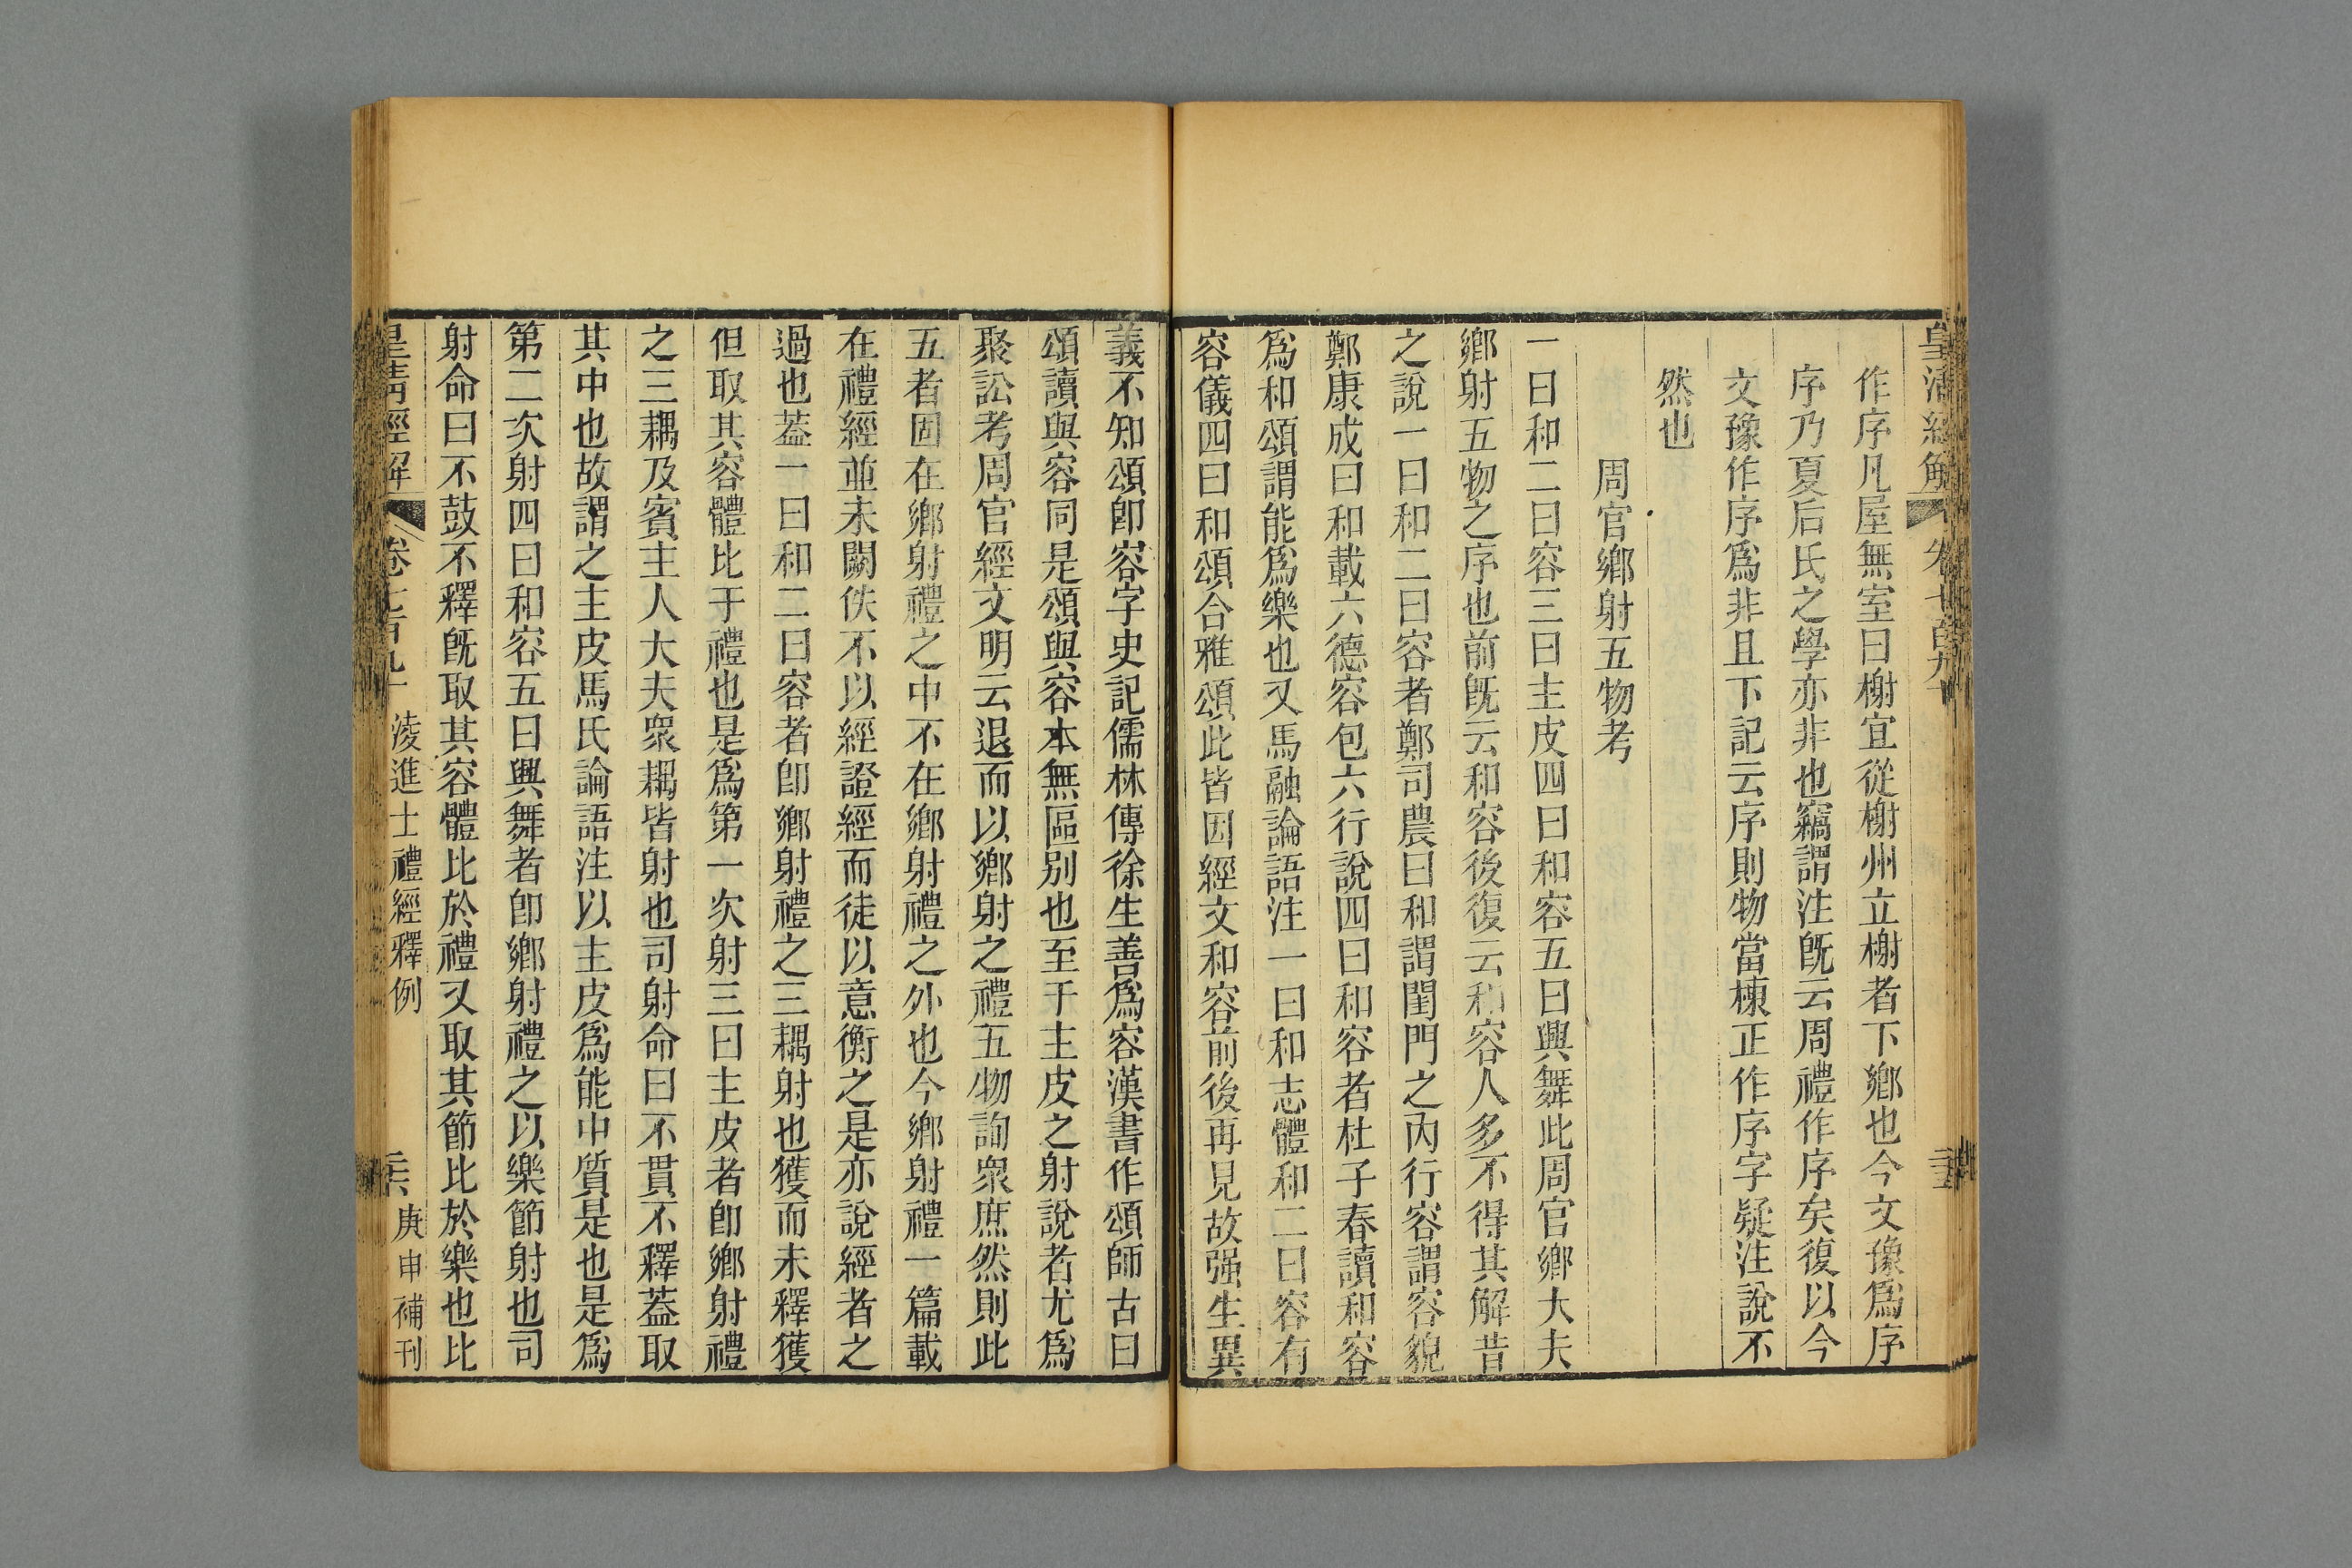 皇清經解 卷七百九十
作序凡屋無室曰榭宜從榭州立榭者下鄉也今文豫爲序
序乃夏后氏之學亦非也竊謂注旣云周禮作序矣復以今
文豫作序爲非且下記云序則物當棟正作序字疑注說不
然也
周官鄉射五物考
一曰和二曰容三曰主皮四曰和容五曰興舞此周官鄉大夫
鄉射五物之序也前旣云和容後復云和容人多不得其解昔
之說一曰和二曰容者鄭司農曰和謂閨門之內行容謂容貌
鄭康成曰和載六德容包六行說四曰和容者杜子春讀和容
爲和頌謂能爲樂也又馬融論語注一曰和志體和二曰容有
容儀四曰和頌合雅頌此皆因經文和容前後再見故强生異
義不知頌卽容字史記儒林傳徐生善爲容漢書作頌師古曰
頌讀與容同是頌與容本無區别也至于主皮之射說者尤爲
聚訟考周官經文明云退而以鄉射之禮五物詢衆庶然則此
五者固在鄉射禮之中不在鄉射禮之外也今鄉射禮一篇載
在禮經並未闕佚不以經證經而徒以意衡之是亦說經者之
過也葢一曰和二曰容者卽鄉射禮之三耦射也獲而未釋獲
但取其容體比于禮也是爲第一次射三曰主皮者卽鄉射禮
之三耦及賓主人大夫衆耦皆射也司射命曰不貫不釋葢取
其中也故謂之主皮馬氏論語注以主皮爲能中質是也是爲
第二次射四曰和容五曰興舞者卽鄉射禮之以樂節射也司
射命曰不鼓不釋旣取其容體比於禮又取其節比於樂也比
皇清經解 卷七百九十 淩進士禮經釋例 庚申補刊